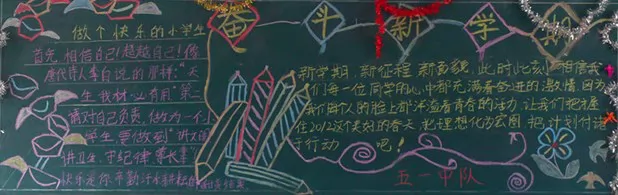 做个快乐的小学生
首先,相信自己!超越自己!像
唐代诗人李白说的那样:"天
生我材必有用"第一
要对自己负责,做为一个
学生要做到"讲文明
讲卫生,守纪律,尊长辈
快乐是你辛勤汗水
奋斗新学期
新学期,新征程,新面貌,此时此刻,相信我
们每一位同学的心中都充满奋进的激情,因为
我们每个人的脸上都洋溢着青春的活力,让我们把握
在2012这个美好的春天,把理想化为宏图,把计划付诸
于行动 吧!
五一中队